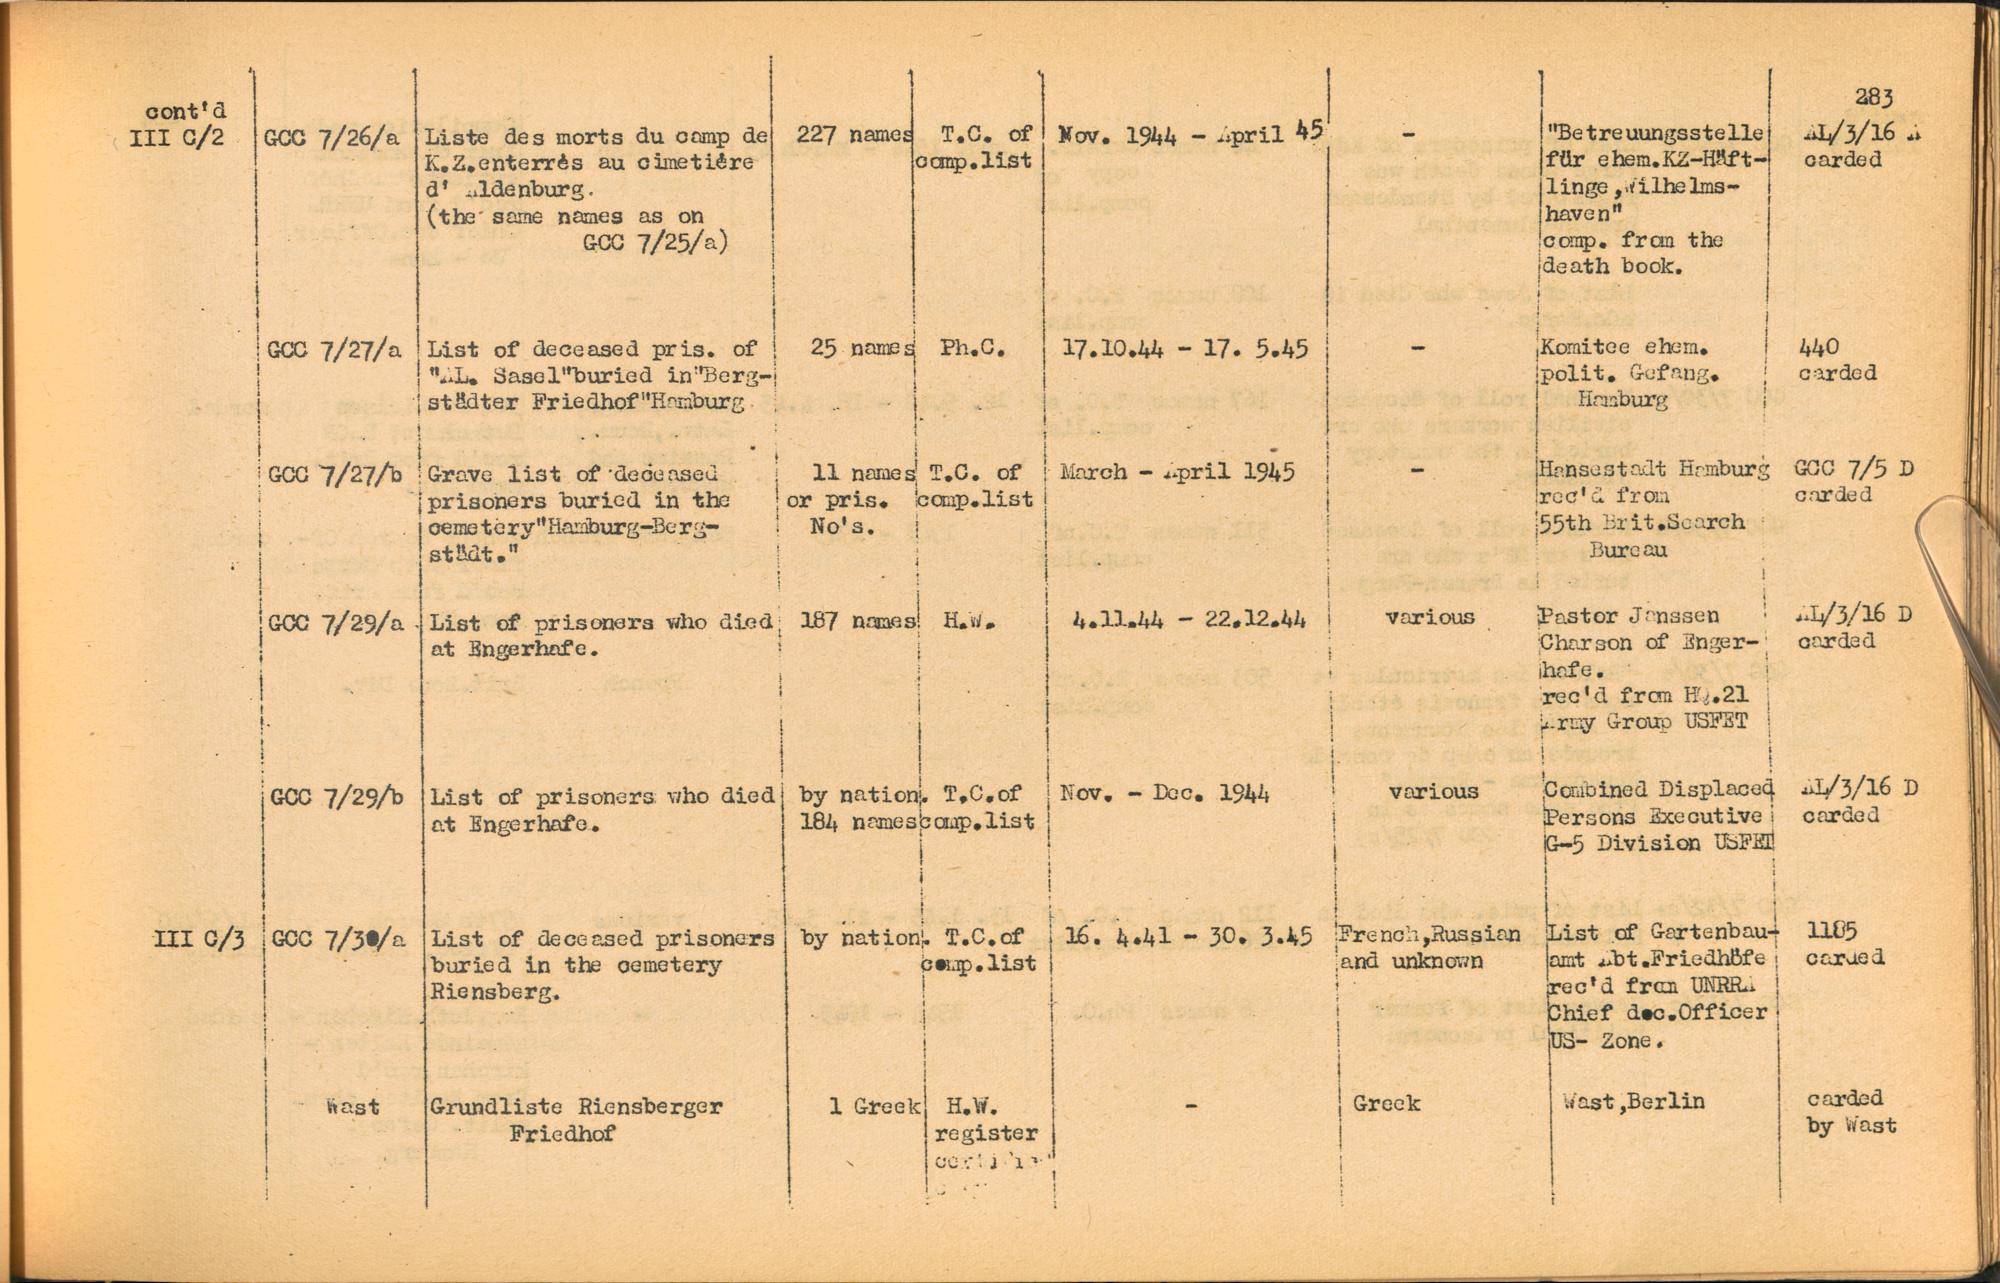 283
cont'd
III C/2 GCC 7/26/a Liste des morts du camp de 227 names T.C. of Nov. 1944 - April 45 - "Betreuungsstelle AL/3/16 A
K.Z.enterrés au cimetiére comp.list für ehem.KZ-Häft- carded
d' Aldenburg. linge,Wilhelms-
(the same names as on haven"
GCC 7/25/a) comp. from the
death book.
GCC 7/27/a List of deceased pris. of 25 names Ph.C. 17.10.44 - 17. 5.45 - Komitee ehem. 440
"AL. Sasel"buried in"Berg- polit. Gefang. carded
städter Friedhof"Hamburg Hamburg
GCC 7/27/b Grave list of deceased 11 names T.C. of March - April 1945 - Hansestadt Hamburg GCC 7/5 D
prisoners buried in the or pris. comp.list rec'd from carded
cemetery"Hamburg-Berg- No's. 55th Brit.Search
städt." Bureau
GCC 7/29/a List of prisoners who died 187 names H.W. 4.11.44 - 22.12.44 various Pastor Janssen AL/3/16 D
at Engerhafe. Charson of Enger- carded
hafe.
rec'd from HQ.21
Army Group USFET
GCC 7/29/b List of prisoners who died by nation. T.C.of Nov. - Dec. 1944 various Combined Displaced AL/3/16 D
at Engerhafe. 184 names comp.list Persons Executive carded
G-5 Division USFET
III C/3 GCC 7/30/a List of deceased prisoners by nation. T.C.of 16. 4.41 - 30. 3.45 French,Russian List of Gartenbau- 1185
buried in the cemetery comp.list and unknown amt Abt.Friedhöfe carded
Riensberg. rec'd from UNRRA
Chief doc.Officer
US- Zone.
Wast Grundliste Riensberger 1 Greek H.W. - Greek Wast,Berlin carded
Friedhof register by Wast